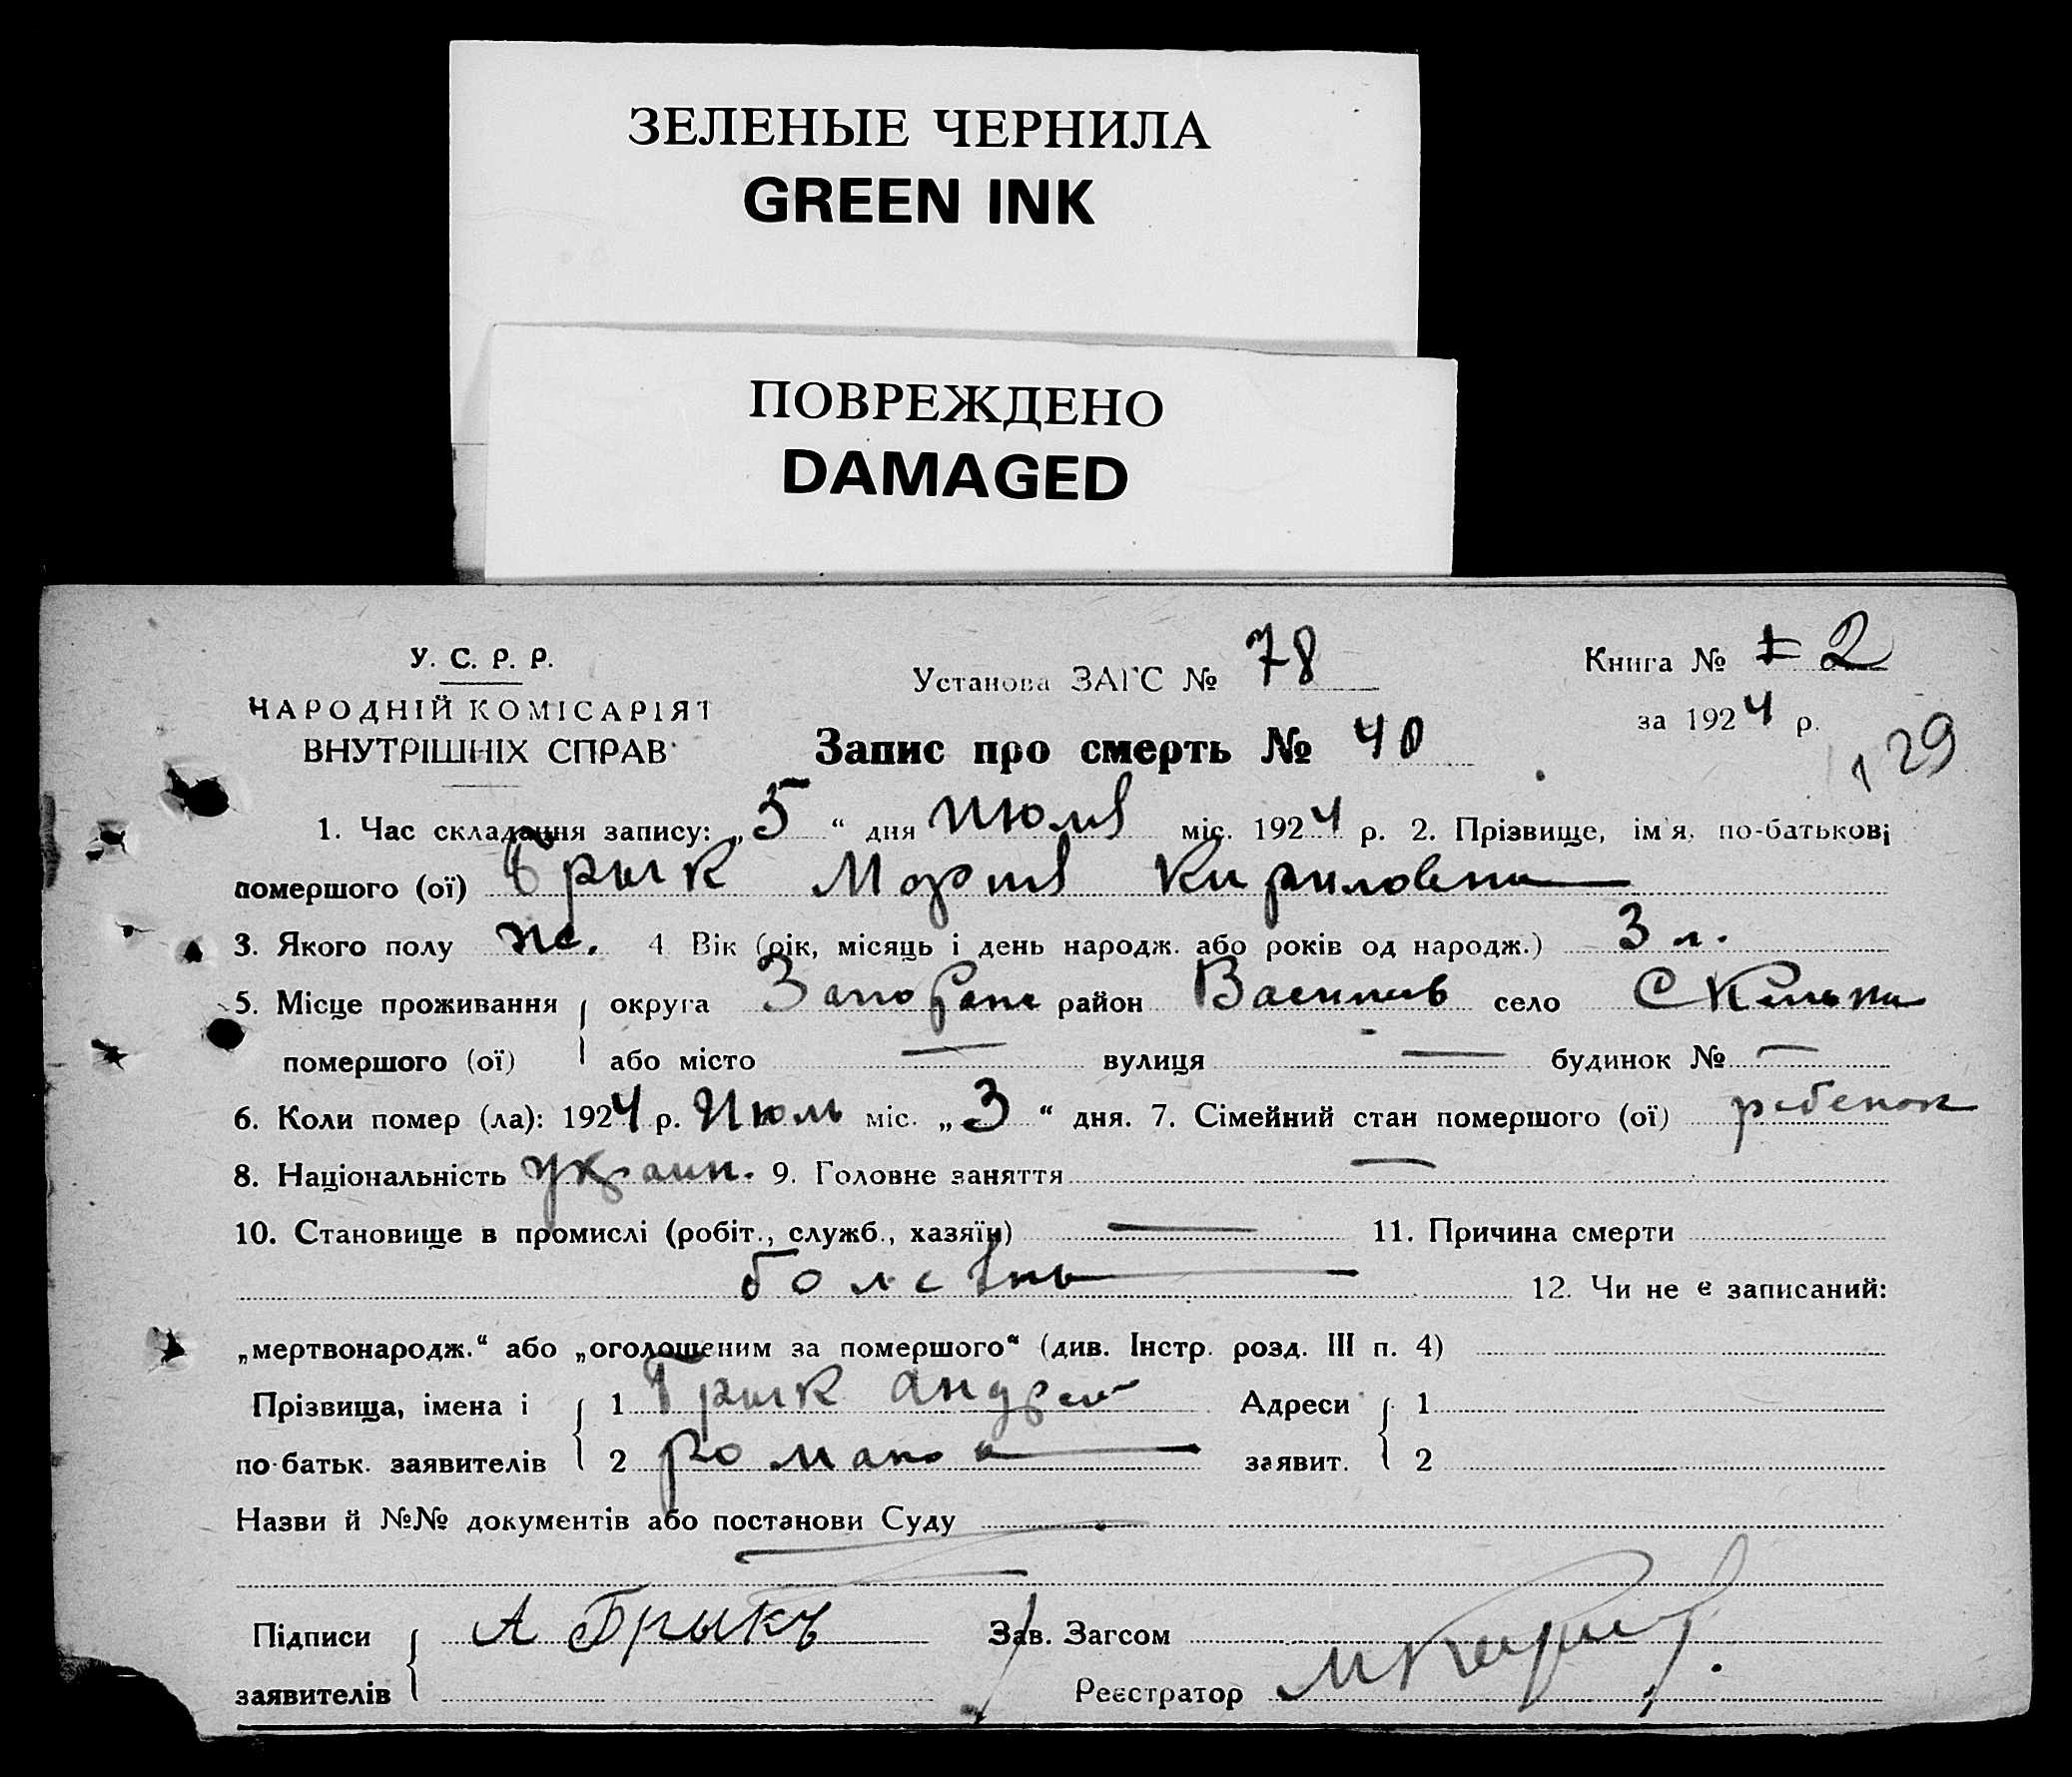 ЗЕЛЕНЫЕ ЧЕРНИЛА
GREEN INK
ПОВРЕЖДЕНО
DAMAGED
У. С. Р. Р.
НАРОДНІЙ КОМІСАРІЯТ
ВНУТРІШНІХ СПРАВ
Установа ЗАГС № 78
Книга № 2
за 1924 р.
129
Запис про смерть № 40
1. Час складання запису: „5“ дня Июля міс. 1924 р. 2. Прізвище, ім'я, по-батькові
помершого (ої) Брык Мария Кириловна
3. Якого полу же. 4 Вік (рік, місяць і день народж. або років од народж.) 3 л.
5. Місце проживання округа Запорож район Василив село Скельки
помершого (ої) або місто — вулиця — будинок № —
6. Коли помер (ла): 1924 р. Июль міс. „3“ дня. 7. Сімейний стан помершого (ої) ребенок
8. Національність украин. 9. Головне заняття —
10. Становище в промислі (робіт., служб., хазяїн) — 11. Причина смерти
болезнь 12. Чи не є записаний:
„мертвонародж.“ або „оголошеним за помершого“ (див. Інстр. розд. III п. 4)
Прізвища, імена і 1 Брык Андрей Адреси 1
по-батьк. заявителів 2 Романов заявит. 2
Назви й №№ документів або постанови Суду
Підписи А Брыкъ Зав. Загсом
заявителів Реєстратор